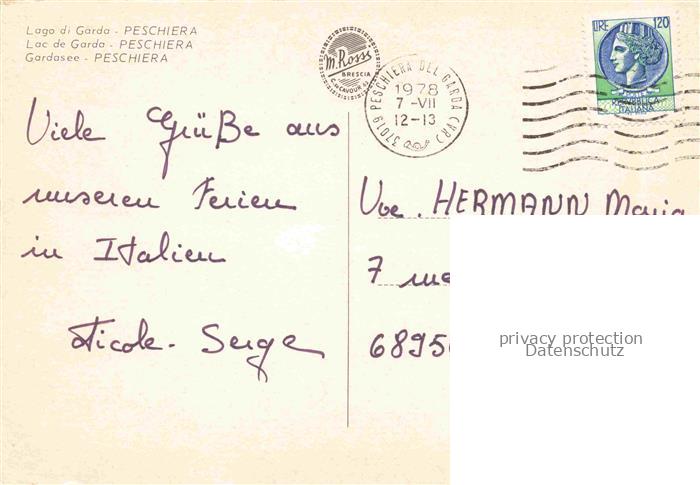 Lago di Garda - PESCHIERA
Lac de Garda - PESCHIERA
Gardasee - PESCHIERA
m. Rossi
BRESCIA
C. CAVOUR
37019 PESCHIERA DEL GARDA (VR)
1978
7-VII
12-13
LIRE 120
POSTE
REPUBBLICA
ITALIANA
Viele Grüße aus
unseren Ferien
in Italien
Nicole - Serge
Vve. HERMANN Maria
7
6895
privacy protection
Datenschutz